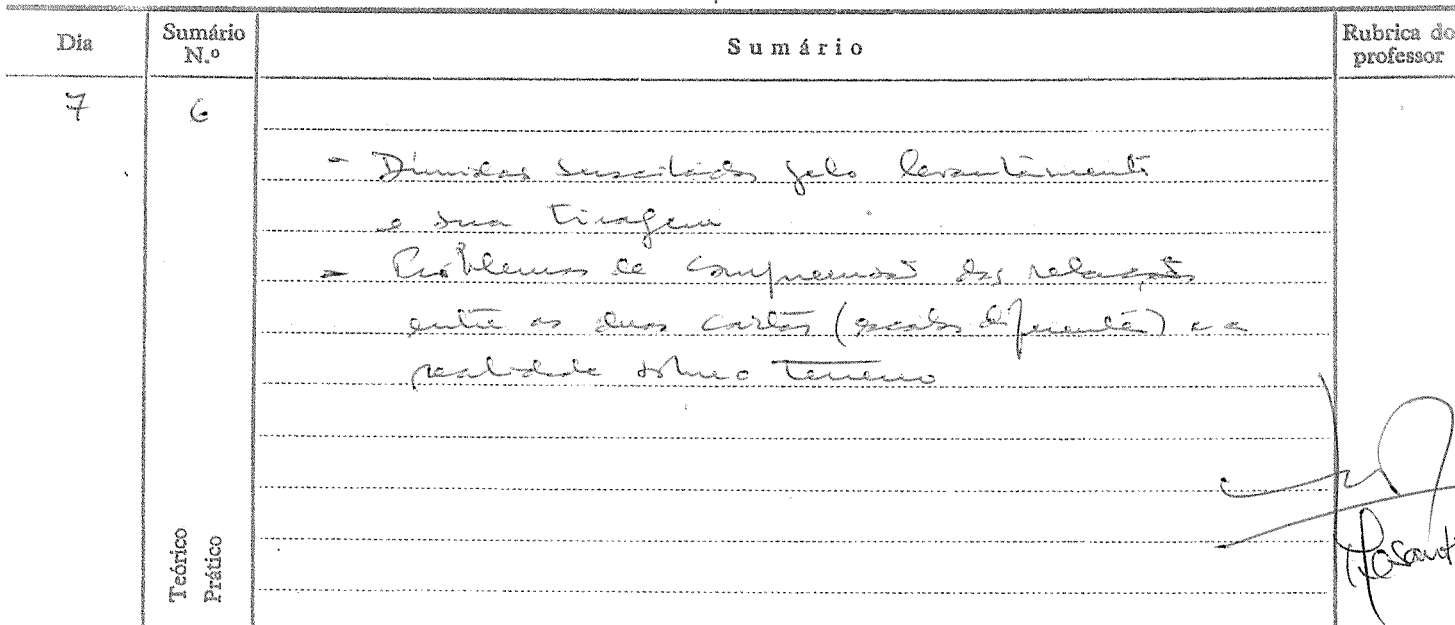 Dia
Sumário N.º
Sumário
Rubrica do professor
7
6
- Dúvidas suscitadas pelo levantamento
e sua tiragem
- Problemas de compreensão das relações
entre as duas cartas (escalas diferentes) e a
realidade sobre o terreno
Teórico
Prático